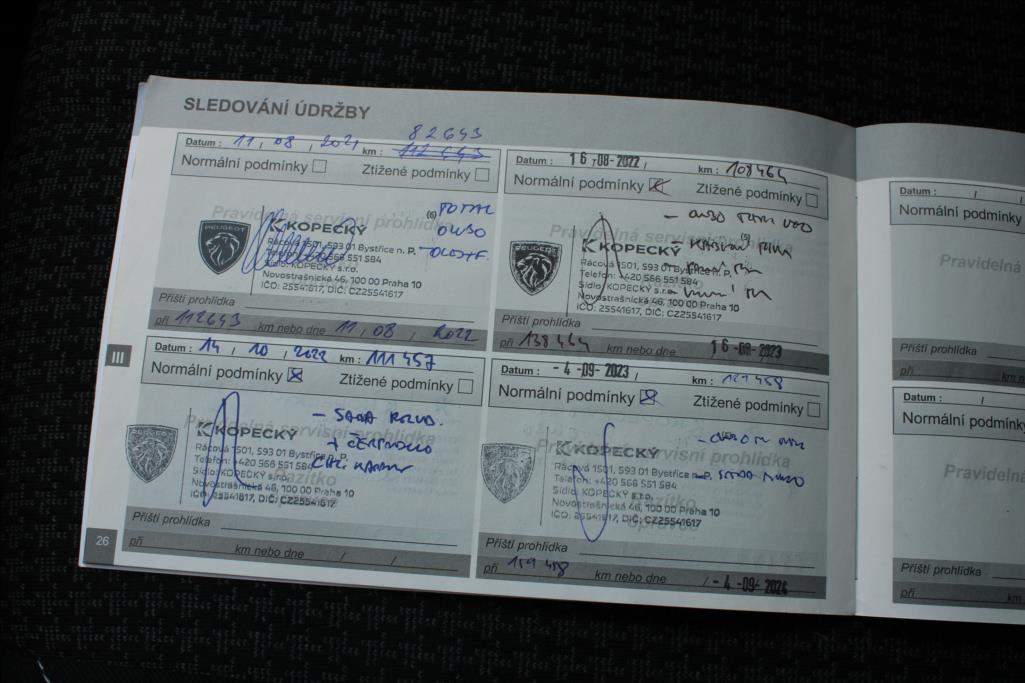 SLEDOVÁNÍ ÚDRŽBY
82643
Datum : 11 , 08 , 2021 km : 112 643
Normální podmínky Ztížené podmínky
Pravidelná servisní prohlídka
(6) TOTAL
PEUGEOT
KOPECKÝ
Rácová 1501, 593 01 Bystřice n. P.
Telefon: +420 566 551 584
Sídlo: KOPECKÝ s.r.o.
Novostrašnická 46, 100 00 Praha 10
IČO: 25541617, DIČ: CZ25541617
Příští prohlídka
při 112643 km nebo dne 11 , 08 , 2022
Datum : 16 -08- 2022 km : 108464
Normální podmínky Ztížené podmínky
Pravidelná servisní prohlídka
(6)
PEUGEOT
KOPECKÝ
Rácová 1501, 593 01 Bystřice n. P.
Telefon: +420 566 551 584
Sídlo: KOPECKÝ s.r.o.
Novostrašnická 46, 100 00 Praha 10
IČO: 25541617, DIČ: CZ25541617
Příští prohlídka
při 138464 km nebo dne 16 -08- 2023
III
Datum : 14 , 10 , 2022 km : 111 457
Normální podmínky Ztížené podmínky
Pravidelná servisní prohlídka
KOPECKÝ
Rácová 1501, 593 01 Bystřice n. P.
Telefon: +420 566 551 584
Sídlo: KOPECKÝ s.r.o.
Novostrašnická 46, 100 00 Praha 10
IČO: 25541617, DIČ: CZ25541617
Příští prohlídka
při km nebo dne / /
Datum : - 4 -09- 2023 km : 129 458
Normální podmínky Ztížené podmínky
Pravidelná servisní prohlídka
KOPECKÝ
Rácová 1501, 593 01 Bystřice n. P.
Telefon: +420 566 551 584
Sídlo: KOPECKÝ s.r.o.
Novostrašnická 46, 100 00 Praha 10
IČO: 25541617, DIČ: CZ25541617
Příští prohlídka
při 159 458 km nebo dne / - 4 -09- 2024
26
Datum : / /
Normální podmínky
Pravidelná
Příští prohlídka
při km
Datum : / /
Normální podmínky
Pravidelná
Příští prohlídka
při km